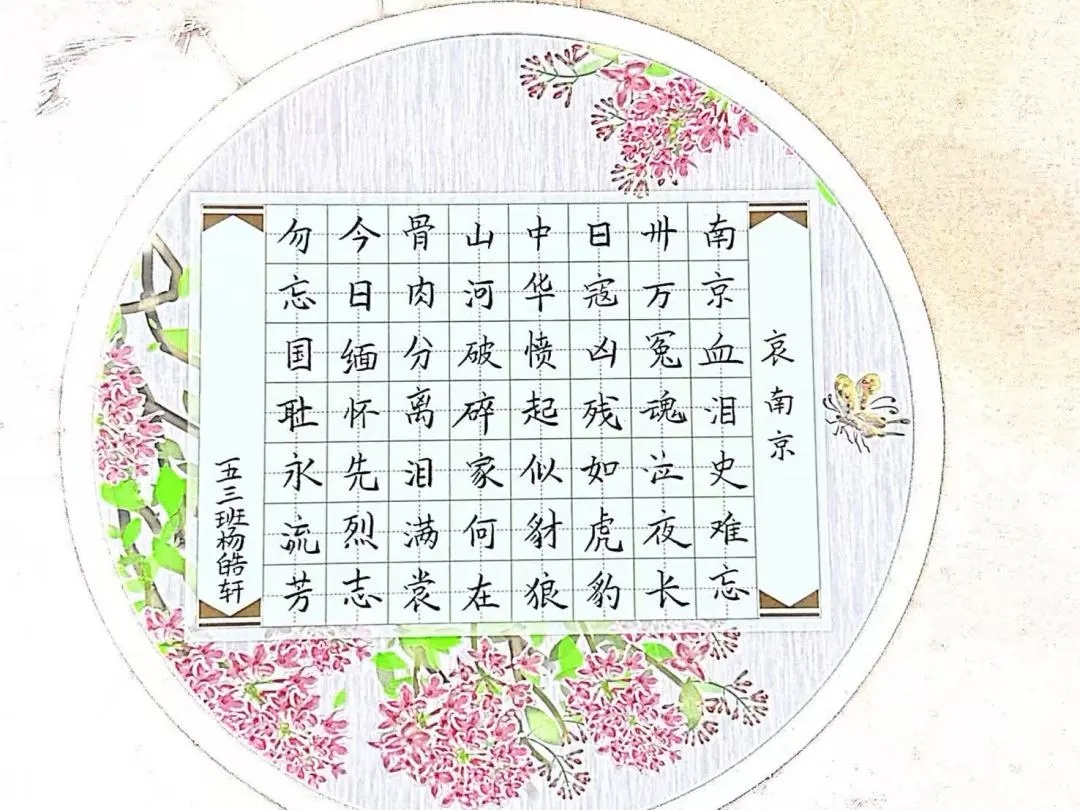 哀南京
南京血泪史难忘
卅万冤魂泣夜长
日寇凶残如虎豹
中华愤起似豺狼
山河破碎家何在
骨肉分离泪满裳
今日缅怀先烈志
勿忘国耻永流芳
五三班杨皓轩